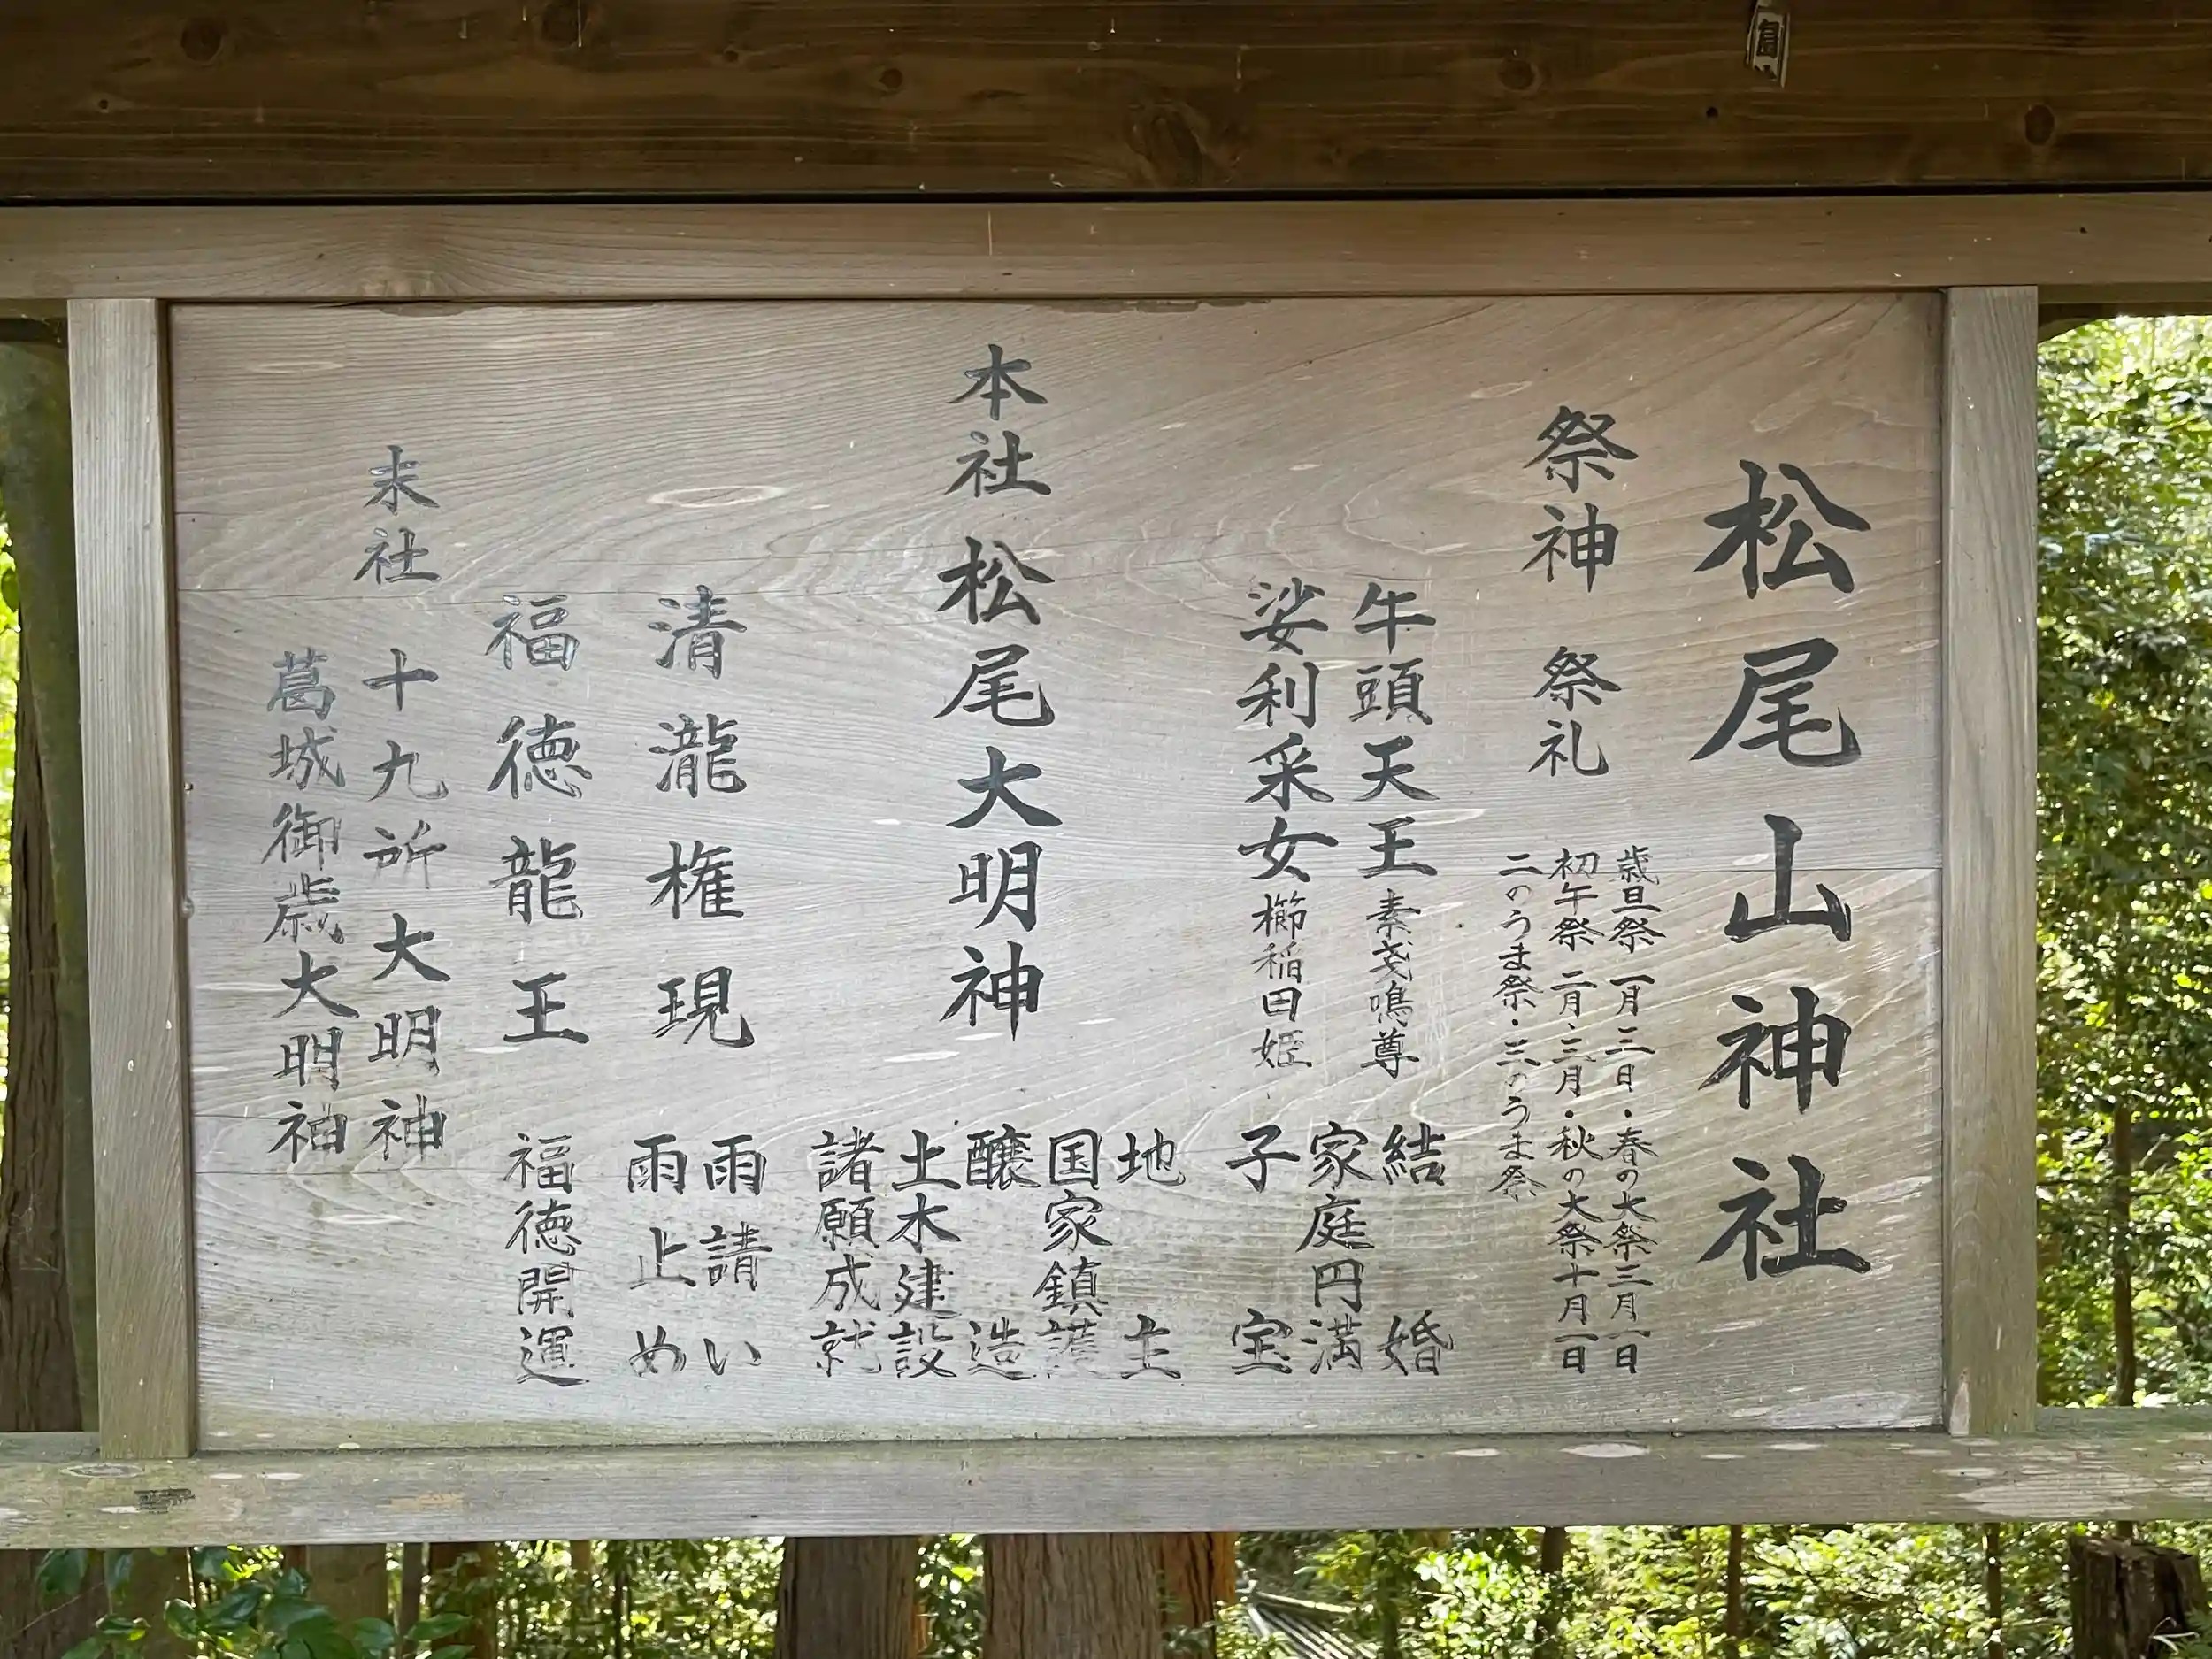 松尾山神社
祭神 祭礼
歳旦祭 一月三日・春の大祭三月一日
初午祭 二月・三月・秋の大祭十月一日
二のうま祭・三のうま祭
牛頭天王 素戔鳴尊
娑利采女 櫛稲田姫
結婚
家庭円満
子宝
本社 松尾大明神
地主
国家鎮護
醸造
土木建設
諸願成就
清瀧権現
雨請い
雨止め
福徳龍王
福徳開運
末社 十九所大明神
葛城御歳大明神